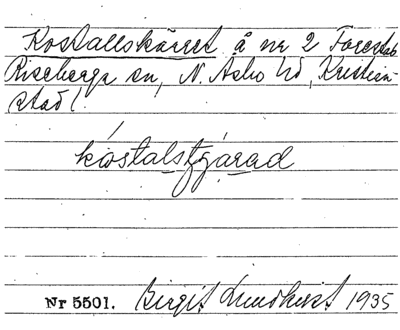 Kostallskärret å nr 2 Forestad
Riseberga sn, N. Åsbo hd, Kristian-
stad l.
Nr 5501. Birgit Lundkvist 1935